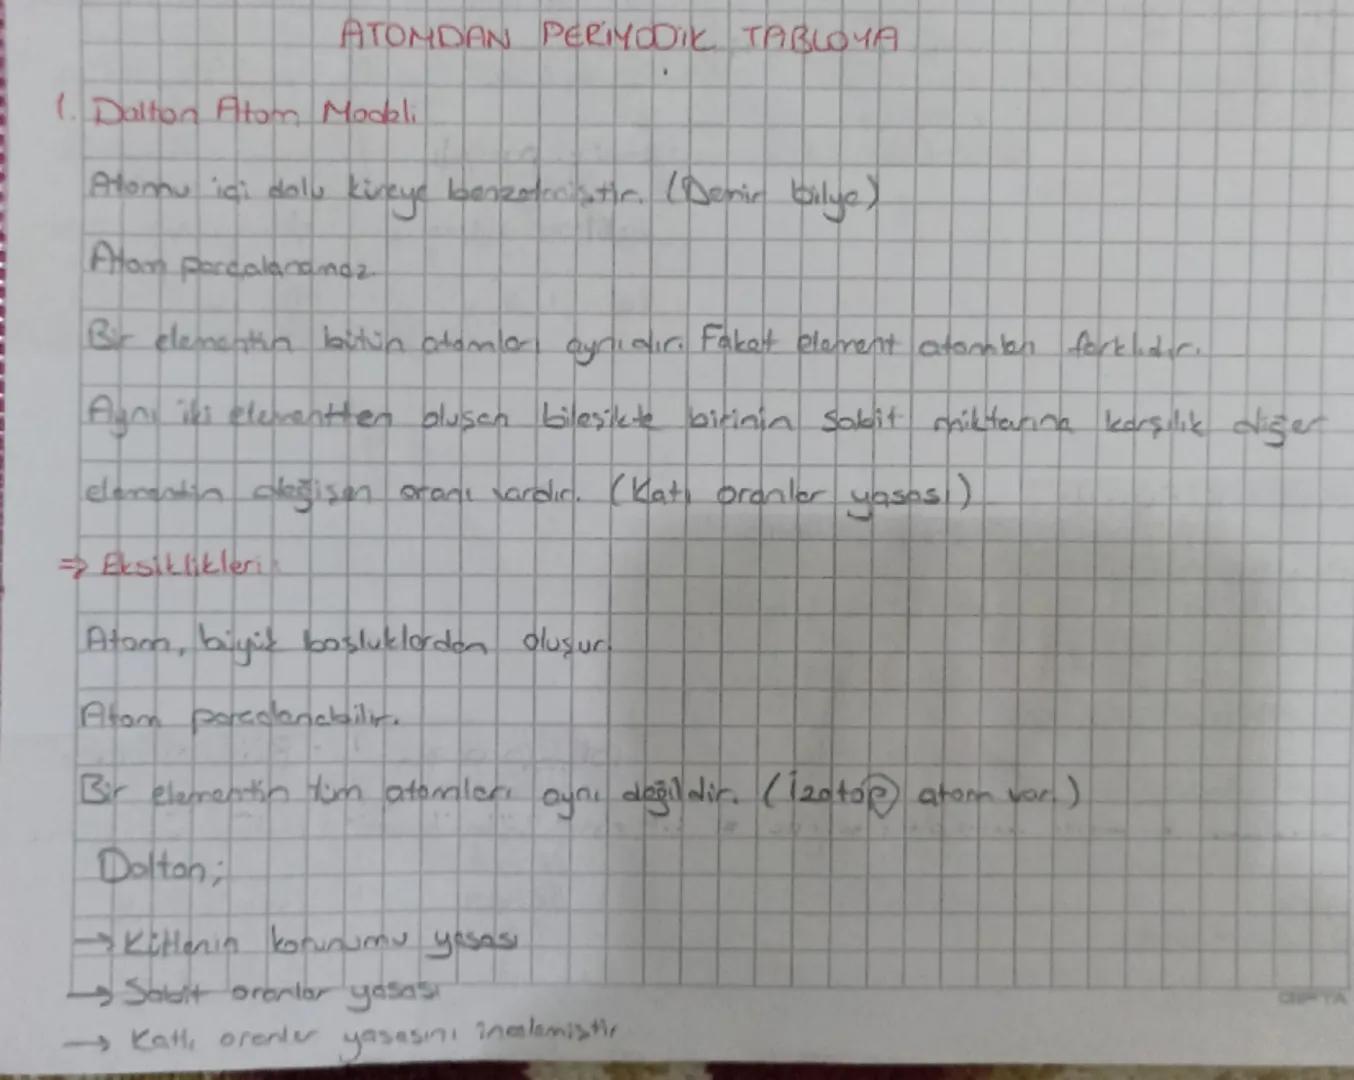 ATOMDAN PERİYODİK TABLOYA
1. Dalton Atom Modeli
Atomu içi dolu küreye benzetmiştir. (Demir bilye)
Atom parçalanamaz.
Bir elementin bütün atomları aynıdır. Fakat element atomları farklıdır.
Aynı iki elementten oluşan bileşikte birinin sabit miktarına karşılık diğer
elementin değişen oranı vardır. (Katlı oranlar yasası)
⇒ Eksiklikleri
Atom, büyük boşluklardan oluşur.
Atom parçalanabilir.
Bir elementin tüm atomları aynı değildir. (İzotop atom var.)
Dalton;
→ Kütlenin korunumu yasası
→ Sabit oranlar yasası
→ Katlı oranlar yasasını incelemiştir